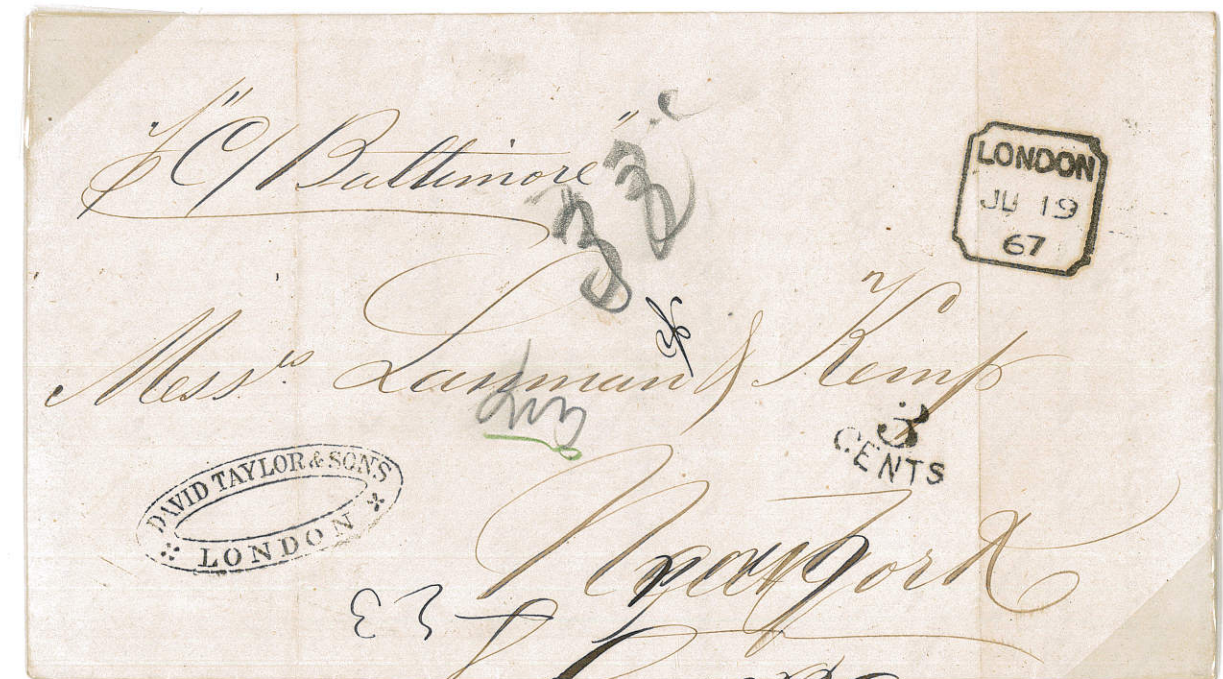 p "C/ Baltimore"
33
LONDON
JU 19
67
Mess.rs Lanman & Kemp
3
CENTS
DAVID TAYLOR & SONS
LONDON
New York